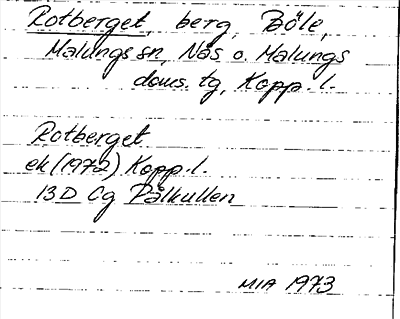 Rotberget, berg, Böle,
Malungs sn, Näs o. Malungs
doms. tg, Kopp. l.
Rotberget
ek (1972) Kopp. l.
13 D Cg Pålkullen
MIA 1973